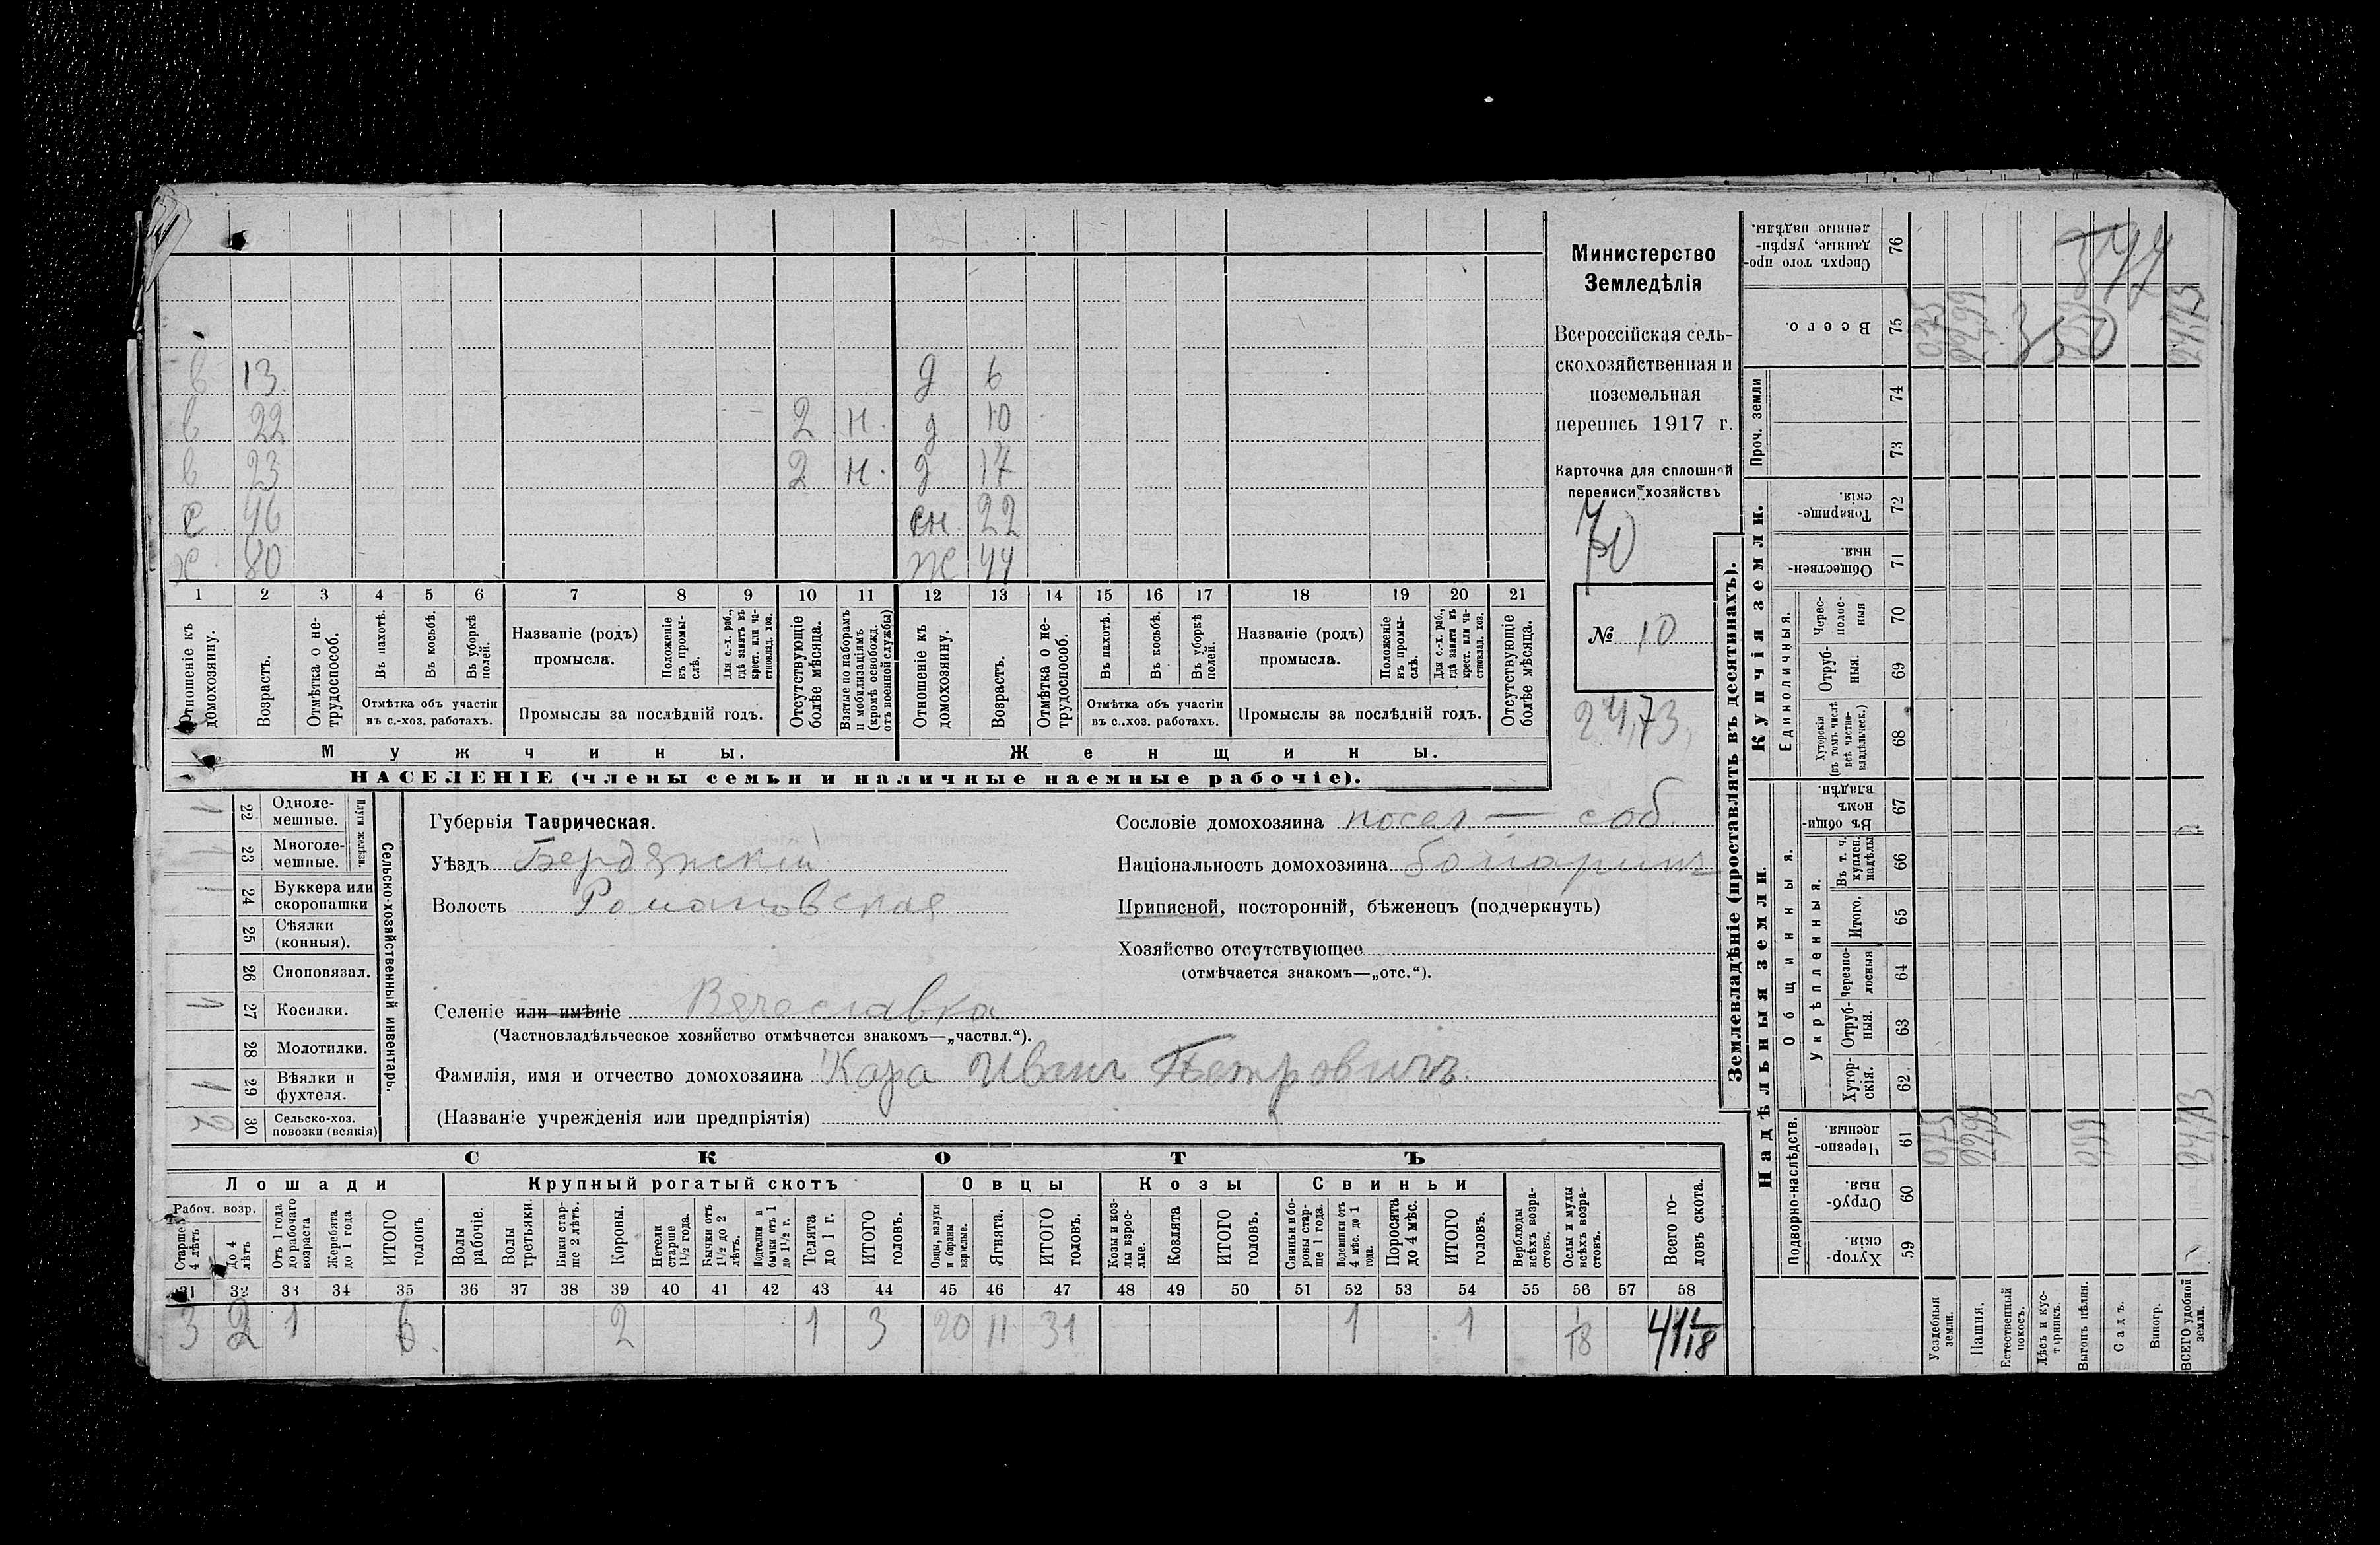 в 13 д 6
в 22 2 н. д 10
в 23 2 н. д 17
с 46 сн 22
х 80 ж 44
1 2 3 4 5 6 7 8 9 10 11 12 13 14 15 16 17 18 19 20 21
Отношеніе къ домохозяину.
Возрастъ.
Отмѣтка о нетрудоспособ.
Въ пахотѣ.
Въ косьбѣ.
Въ уборкѣ полей.
Отмѣтка объ участіи въ с.-хоз. работахъ.
Названіе (родъ) промысла.
Положеніе въ промыслѣ.
Для с.-х. раб., гдѣ занятъ въ крест. или частновлад. хоз.
Промыслы за послѣдній годъ.
Отсутствующіе болѣе мѣсяца.
Взятые по наборамъ и мобилизаціямъ (кромѣ освобожд. отъ военной службы)
Отношеніе къ домохозяину.
Возрастъ.
Отмѣтка о нетрудоспособ.
Въ пахотѣ.
Въ косьбѣ.
Въ уборкѣ полей.
Отмѣтка объ участіи въ с.-хоз. работахъ.
Названіе (родъ) промысла.
Положеніе въ промыслѣ.
Для с.-х. раб., гдѣ занята въ крест. или частновлад. хоз.
Промыслы за послѣдній годъ.
Отсутствующіе болѣе мѣсяца.
Мужчины. Женщины.
НАСЕЛЕНІЕ (члены семьи и наличные наемные рабочіе).
Министерство
Земледѣлія
Всероссійская сель-
скохозяйственная и
поземельная
перепись 1917 г.
Карточка для сплошной
переписи хозяйствъ
№ 10
24,73
1 22 Одноле-мешные.
1 23 Многоле-мешные.
Плуги желѣзн.
1 24 Буккера или скоропашки
25 Сѣялки (конныя).
26 Сноповязал.
1 27 Косилки.
28 Молотилки.
1 29 Вѣялки и фухтеля.
2 30 Сельско-хоз. повозки (всякія)
Сельско-хозяйственный инвентарь.
Губернія Таврическая.
Уѣздъ Бердянскій
Волость Романовская
Селеніе или имѣніе Вячеславка
(Частновладѣльческое хозяйство отмѣчается знакомъ—„частвл.“).
Фамилія, имя и отчество домохозяина Кара Иванъ Петровичъ
(Названіе учрежденія или предпріятія)
Сословіе домохозяина посел — соб.
Національность домохозяина болгаринъ
Приписной, посторонній, бѣженецъ (подчеркнуть)
Хозяйство отсутствующее
(отмѣчается знакомъ—„отс.“).
СКОТЪ
Лошади Крупный рогатый скотъ Овцы Козы Свиньи
Рабоч. возр.
Старше 4 лѣтъ
До 4 лѣтъ
Отъ 1 года до рабочаго возраста
Жеребята до 1 года
ИТОГО головъ
Волы рабочіе.
Волы третьяки.
Быки старше 2 лѣтъ.
Коровы.
Нетели старше 1½ года.
Бычки отъ 1½ до 2 лѣтъ.
Подтелки и бычки отъ 1 до 1½ г.
Телята до 1 г.
ИТОГО головъ.
Овцы, валухи и бараны взрослые.
Ягнята.
ИТОГО головъ.
Козы и козлы взрослые.
Козлята
ИТОГО головъ.
Свиньи и боровы старше 1 года.
Подсвинки отъ 4 мѣс. до 1 года.
Поросята до 4 мѣс.
ИТОГО головъ.
Верблюды всѣхъ возрастовъ.
Ослы и мулы всѣхъ возрастовъ.
Всего головъ скота.
31 32 33 34 35 36 37 38 39 40 41 42 43 44 45 46 47 48 49 50 51 52 53 54 55 56 57 58
3 2 1 6 2 1 3 20 11 31 1 1 1/18 41 1/18
Землевладѣніе (проставлять въ десятинахъ).
Надѣльныя земли. Купчія земли. Проч. земли
Подворно-наслѣдств.
Общинныя.
Укрѣпленныя.
Единоличныя.
Хуторскія. 59
Отрубныя. 60
Черезполосныя. 61
Хуторскія. 62.
Отрубныя. 63
Черезполосныя 64
Итого. 65
Въ т. ч. куплен. надѣлы 66
Въ общинномъ владѣн. 67
Хуторскія (въ томъ числѣ всѣ частновладѣльческ.) 68
Отрубныя. 69
Чересполосныя 70
Общественныя. 71
Товарищескія. 72
73
74
Всего. 75
Сверхъ того проданные, укрѣпленные надѣлы. 76
Усадебныя земли.
Пашня.
Естественный покосъ.
Лѣсъ и кустарникъ.
Выгонъ цѣлин.
Садъ.
Виногр.
ВСЕГО удобной земли.
0,75 22,99 0,99 24,73
0,75 22,99 350 24,73